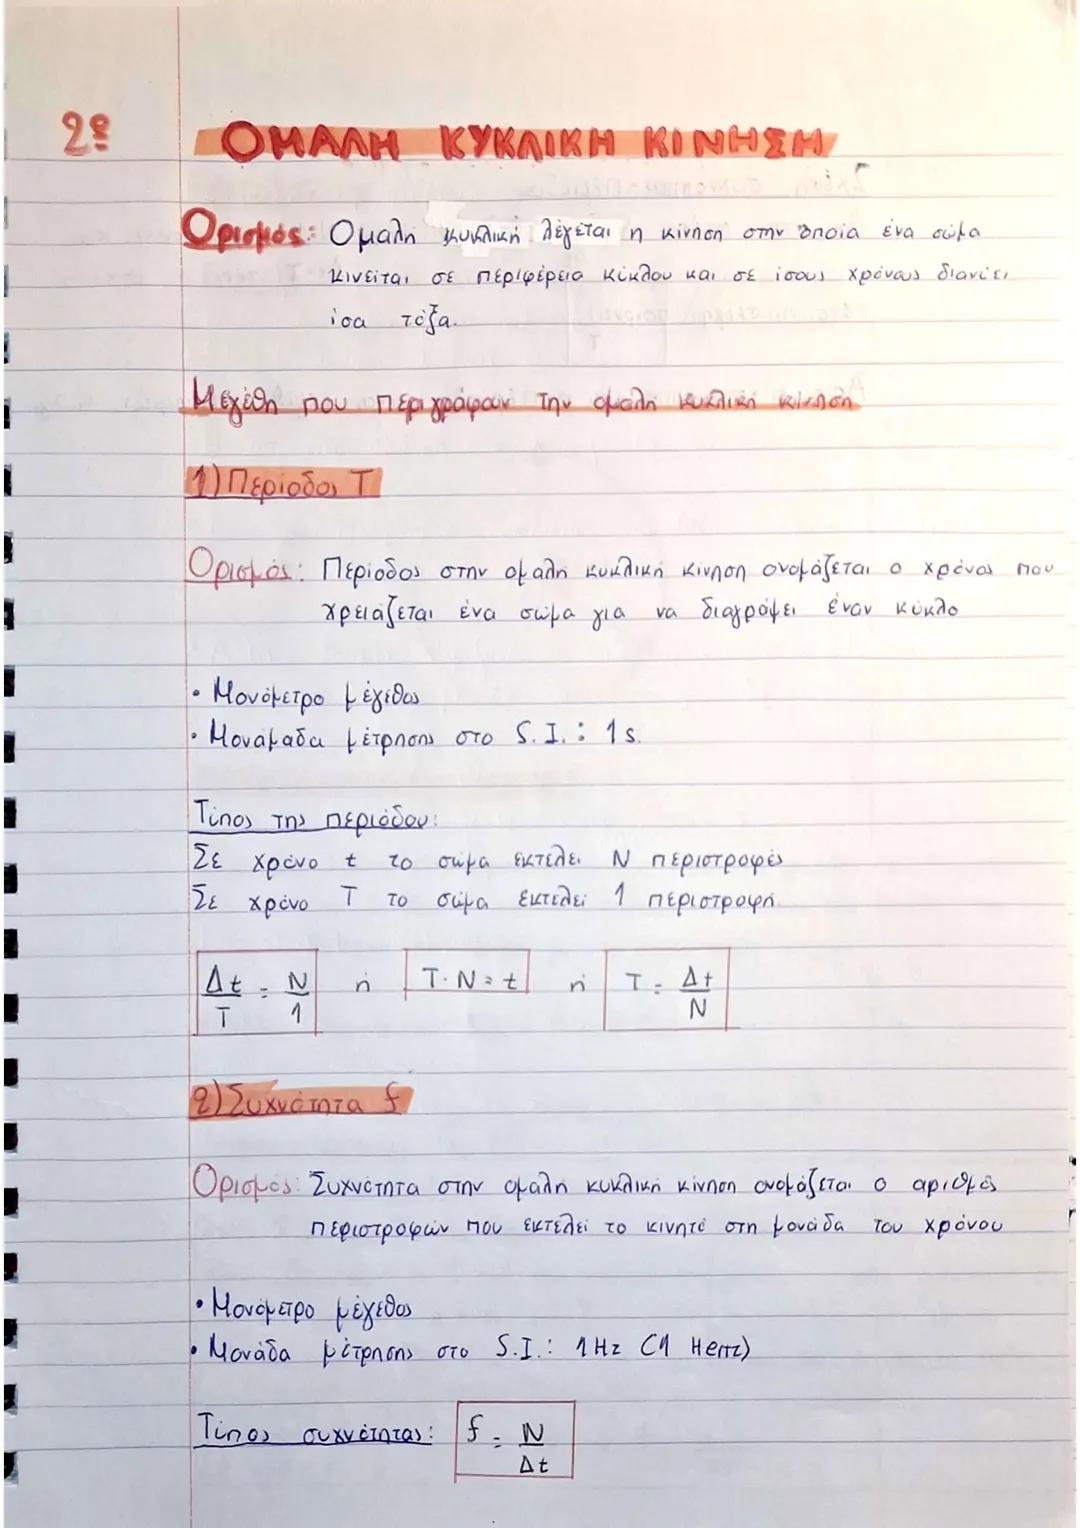 2º ΟΜΑΛΗ ΚΥΚΛΙΚΗ ΚΙΝΗΣΗ
Ορισμός: Ομαλή κυκλική λέγεται η κίνηση στην οποία ένα σώμα
κινείται σε περιφέρεια κύκλου και σε ίσους χρόνους διανύει
ίσα τόξα.
Μεγέθη που περιγράφουν την ομαλή κυκλική κίνηση
1) Περίοδος Τ
Ορισμός: Περίοδος στην ομαλή κυκλική κίνηση ονομάζεται ο χρόνος που
χρειάζεται ένα σώμα για να διαγράψει έναν κύκλο
• Μονόμετρο μέγεθος
• Μονάμαδα μέτρησης στο S.I.: 1 s.
Τύπος της περιόδου:
Σε χρόνο t το σώμα εκτελεί N περιστροφές
Σε χρόνο T το σώμα εκτελεί 1 περιστροφή.
Δt/T = N/1 ή T·N=t ή T = Δt/N
2) Συχνότητα f
Ορισμός: Συχνότητα στην ομαλή κυκλική κίνηση ονομάζεται ο αριθμός
περιστροφών που εκτελεί το κινητό στη μονάδα του χρόνου
• Μονόμετρο μέγεθος
• Μονάδα μέτρησης στο S.I.: 1 Hz (1 Hertz)
Τύπος συχνότητας: f = N/Δt